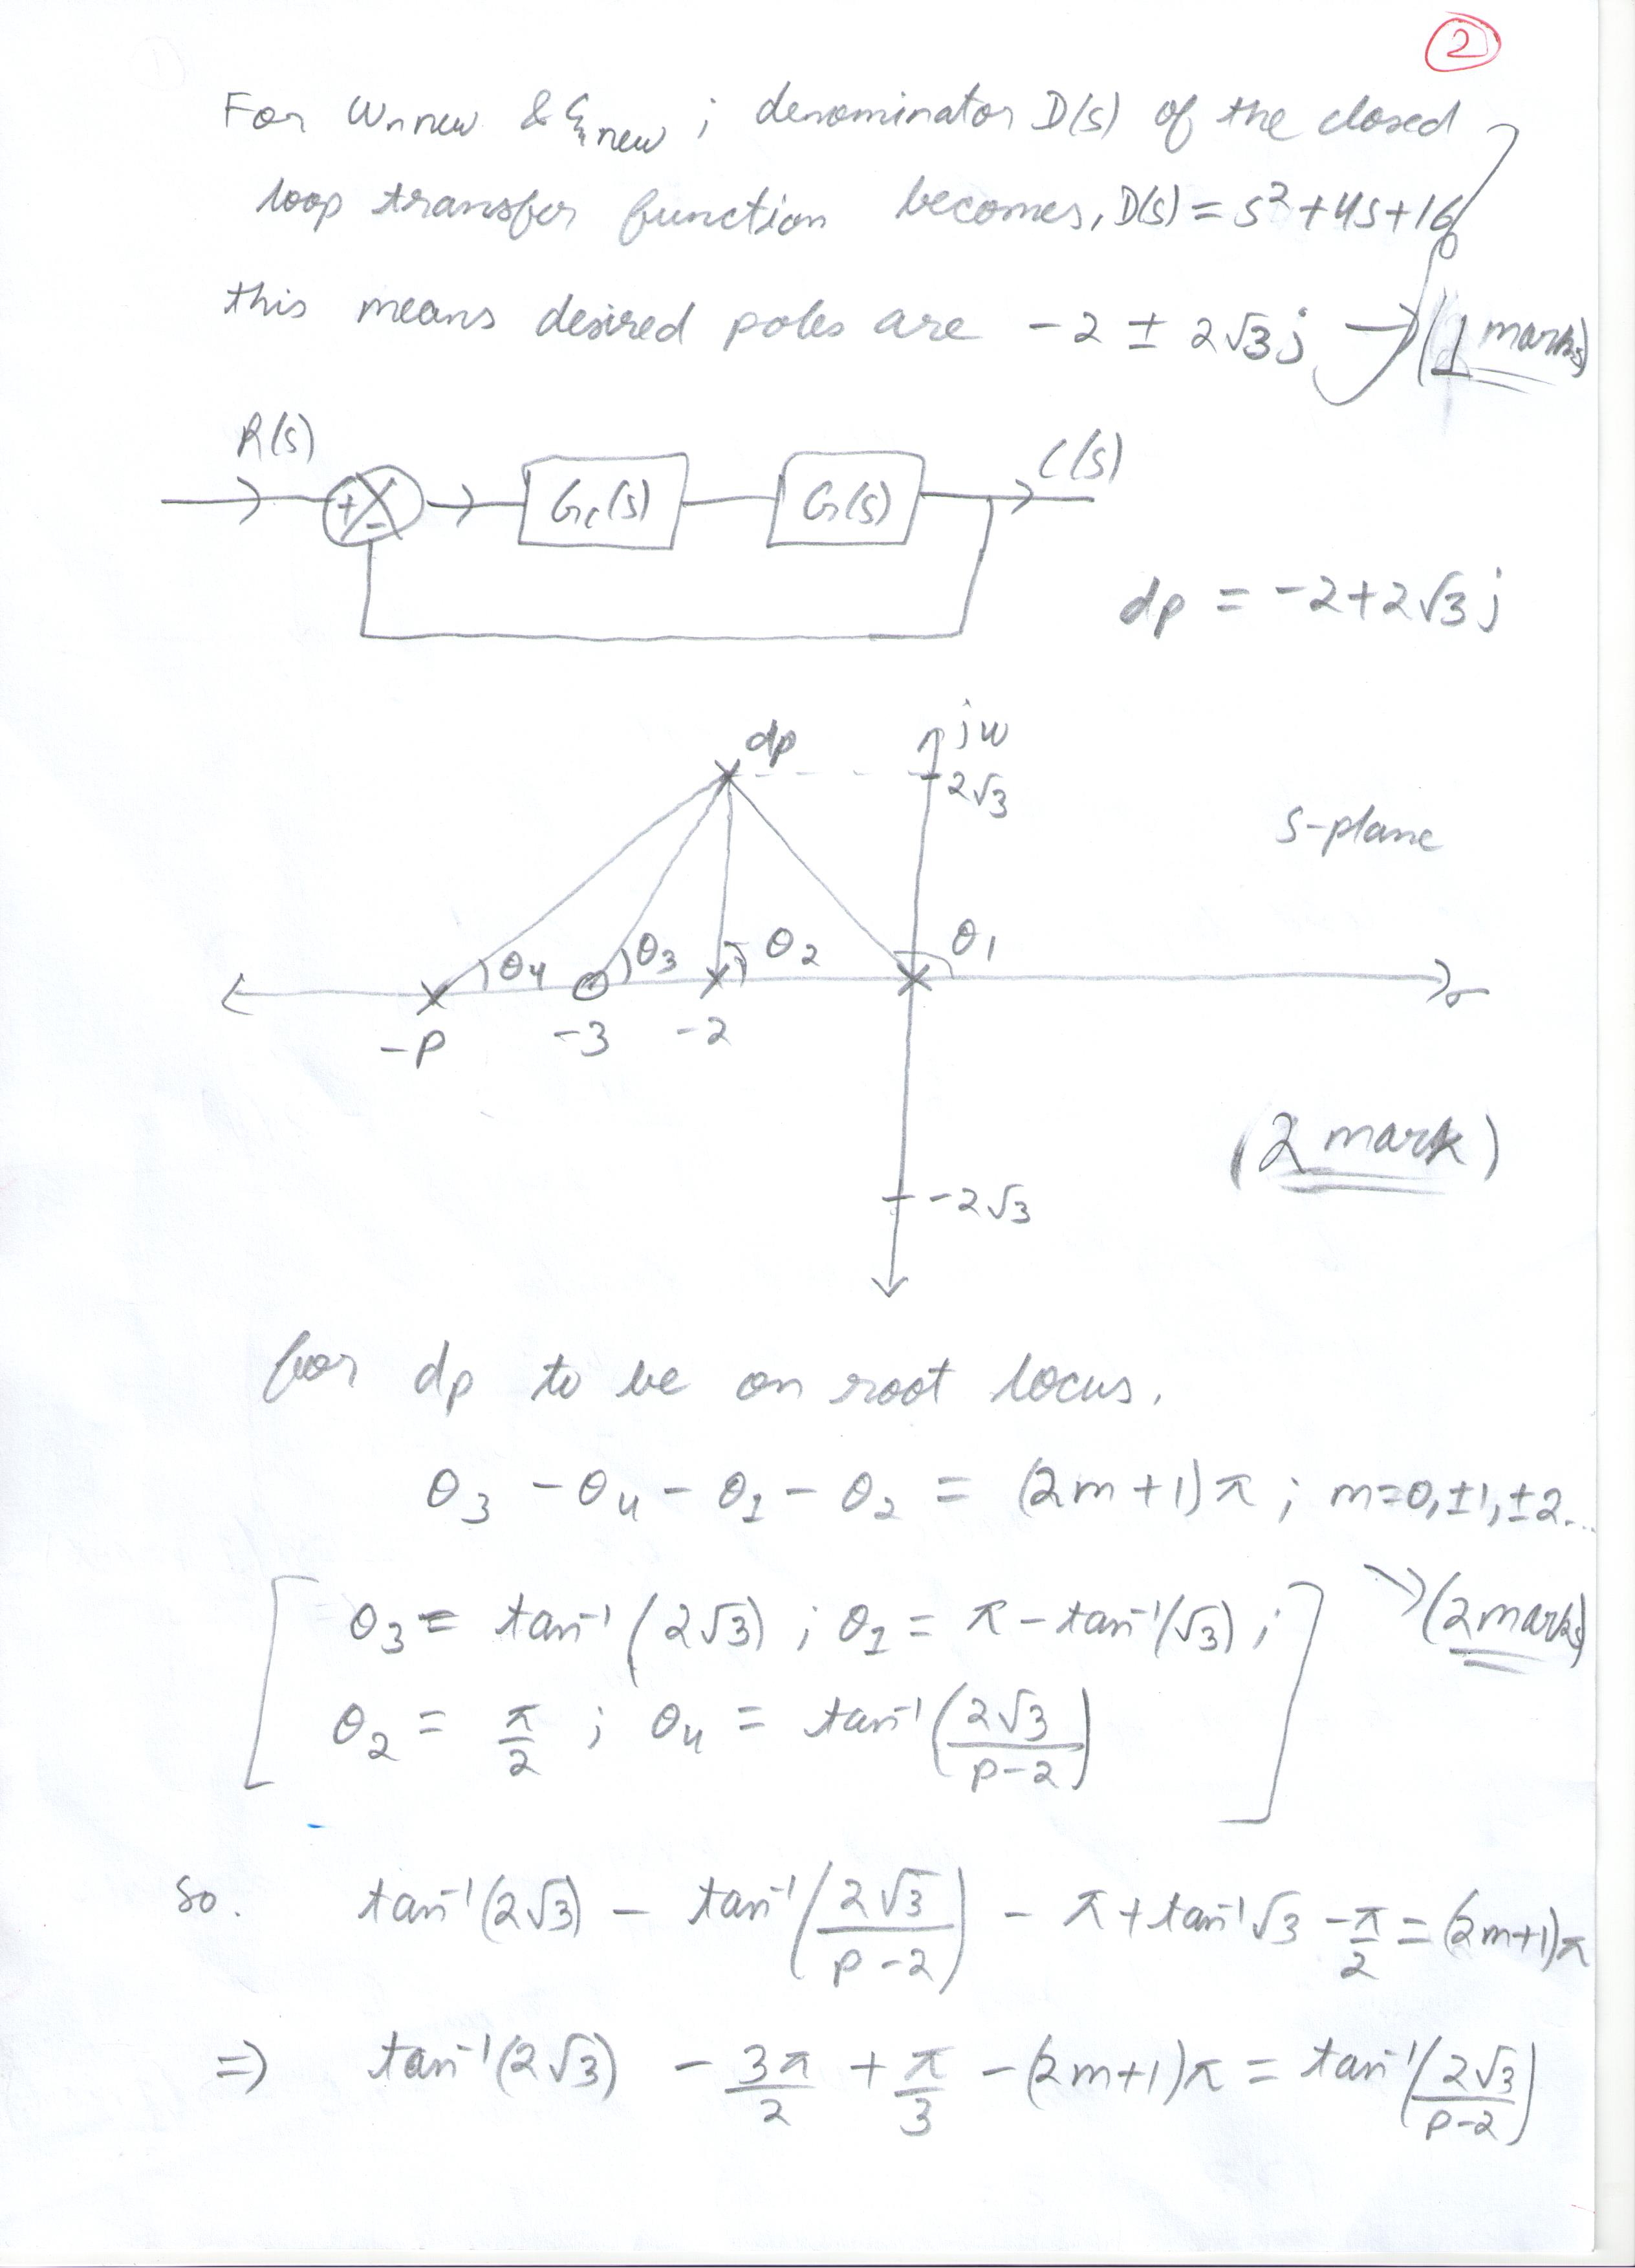 2
For ωn new & ξnew ; denominator D(s) of the closed
loop transfer function becomes, D(s) = s²+4s+16
this means desired poles are -2 ± 2√3j → (1 marks)
R(s)
C(s)
+
-
Gc(s)
G(s)
dp = -2+2√3j
dp
jω
2√3
s-plane
θ4
θ3
θ2
θ1
σ
-p
-3
-2
(2 mark)
-2√3
for dp to be on root locus.
θ3 - θ4 - θ1 - θ2 = (2m+1)π ; m=0,±1,±2...
θ3 = tan⁻¹(2√3) ; θ1 = π - tan⁻¹(√3) ; → (2 marks)
θ2 = π/2 ; θ4 = tan⁻¹(2√3/(p-2))
so. tan⁻¹(2√3) - tan⁻¹(2√3/(p-2)) - π + tan⁻¹√3 - π/2 = (2m+1)π
=> tan⁻¹(2√3) - 3π/2 + π/3 - (2m+1)π = tan⁻¹(2√3/(p-2))